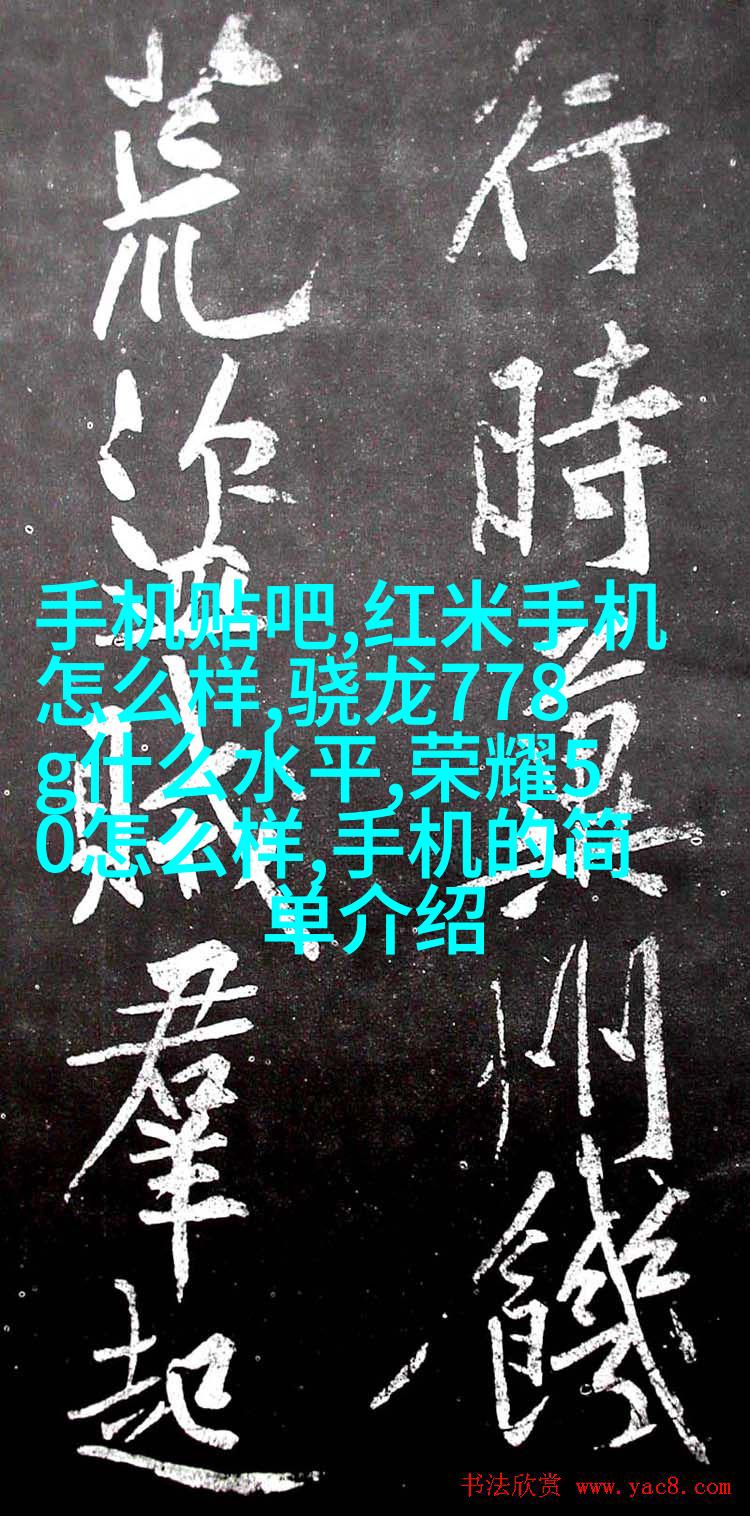 行時冀州饑
荒盜賊羣起
手机贴吧,红米手机
怎么样,骁龙778
g什么水平,荣耀5
0怎么样,手机的简
单介绍
书法欣赏 www.yac8.com